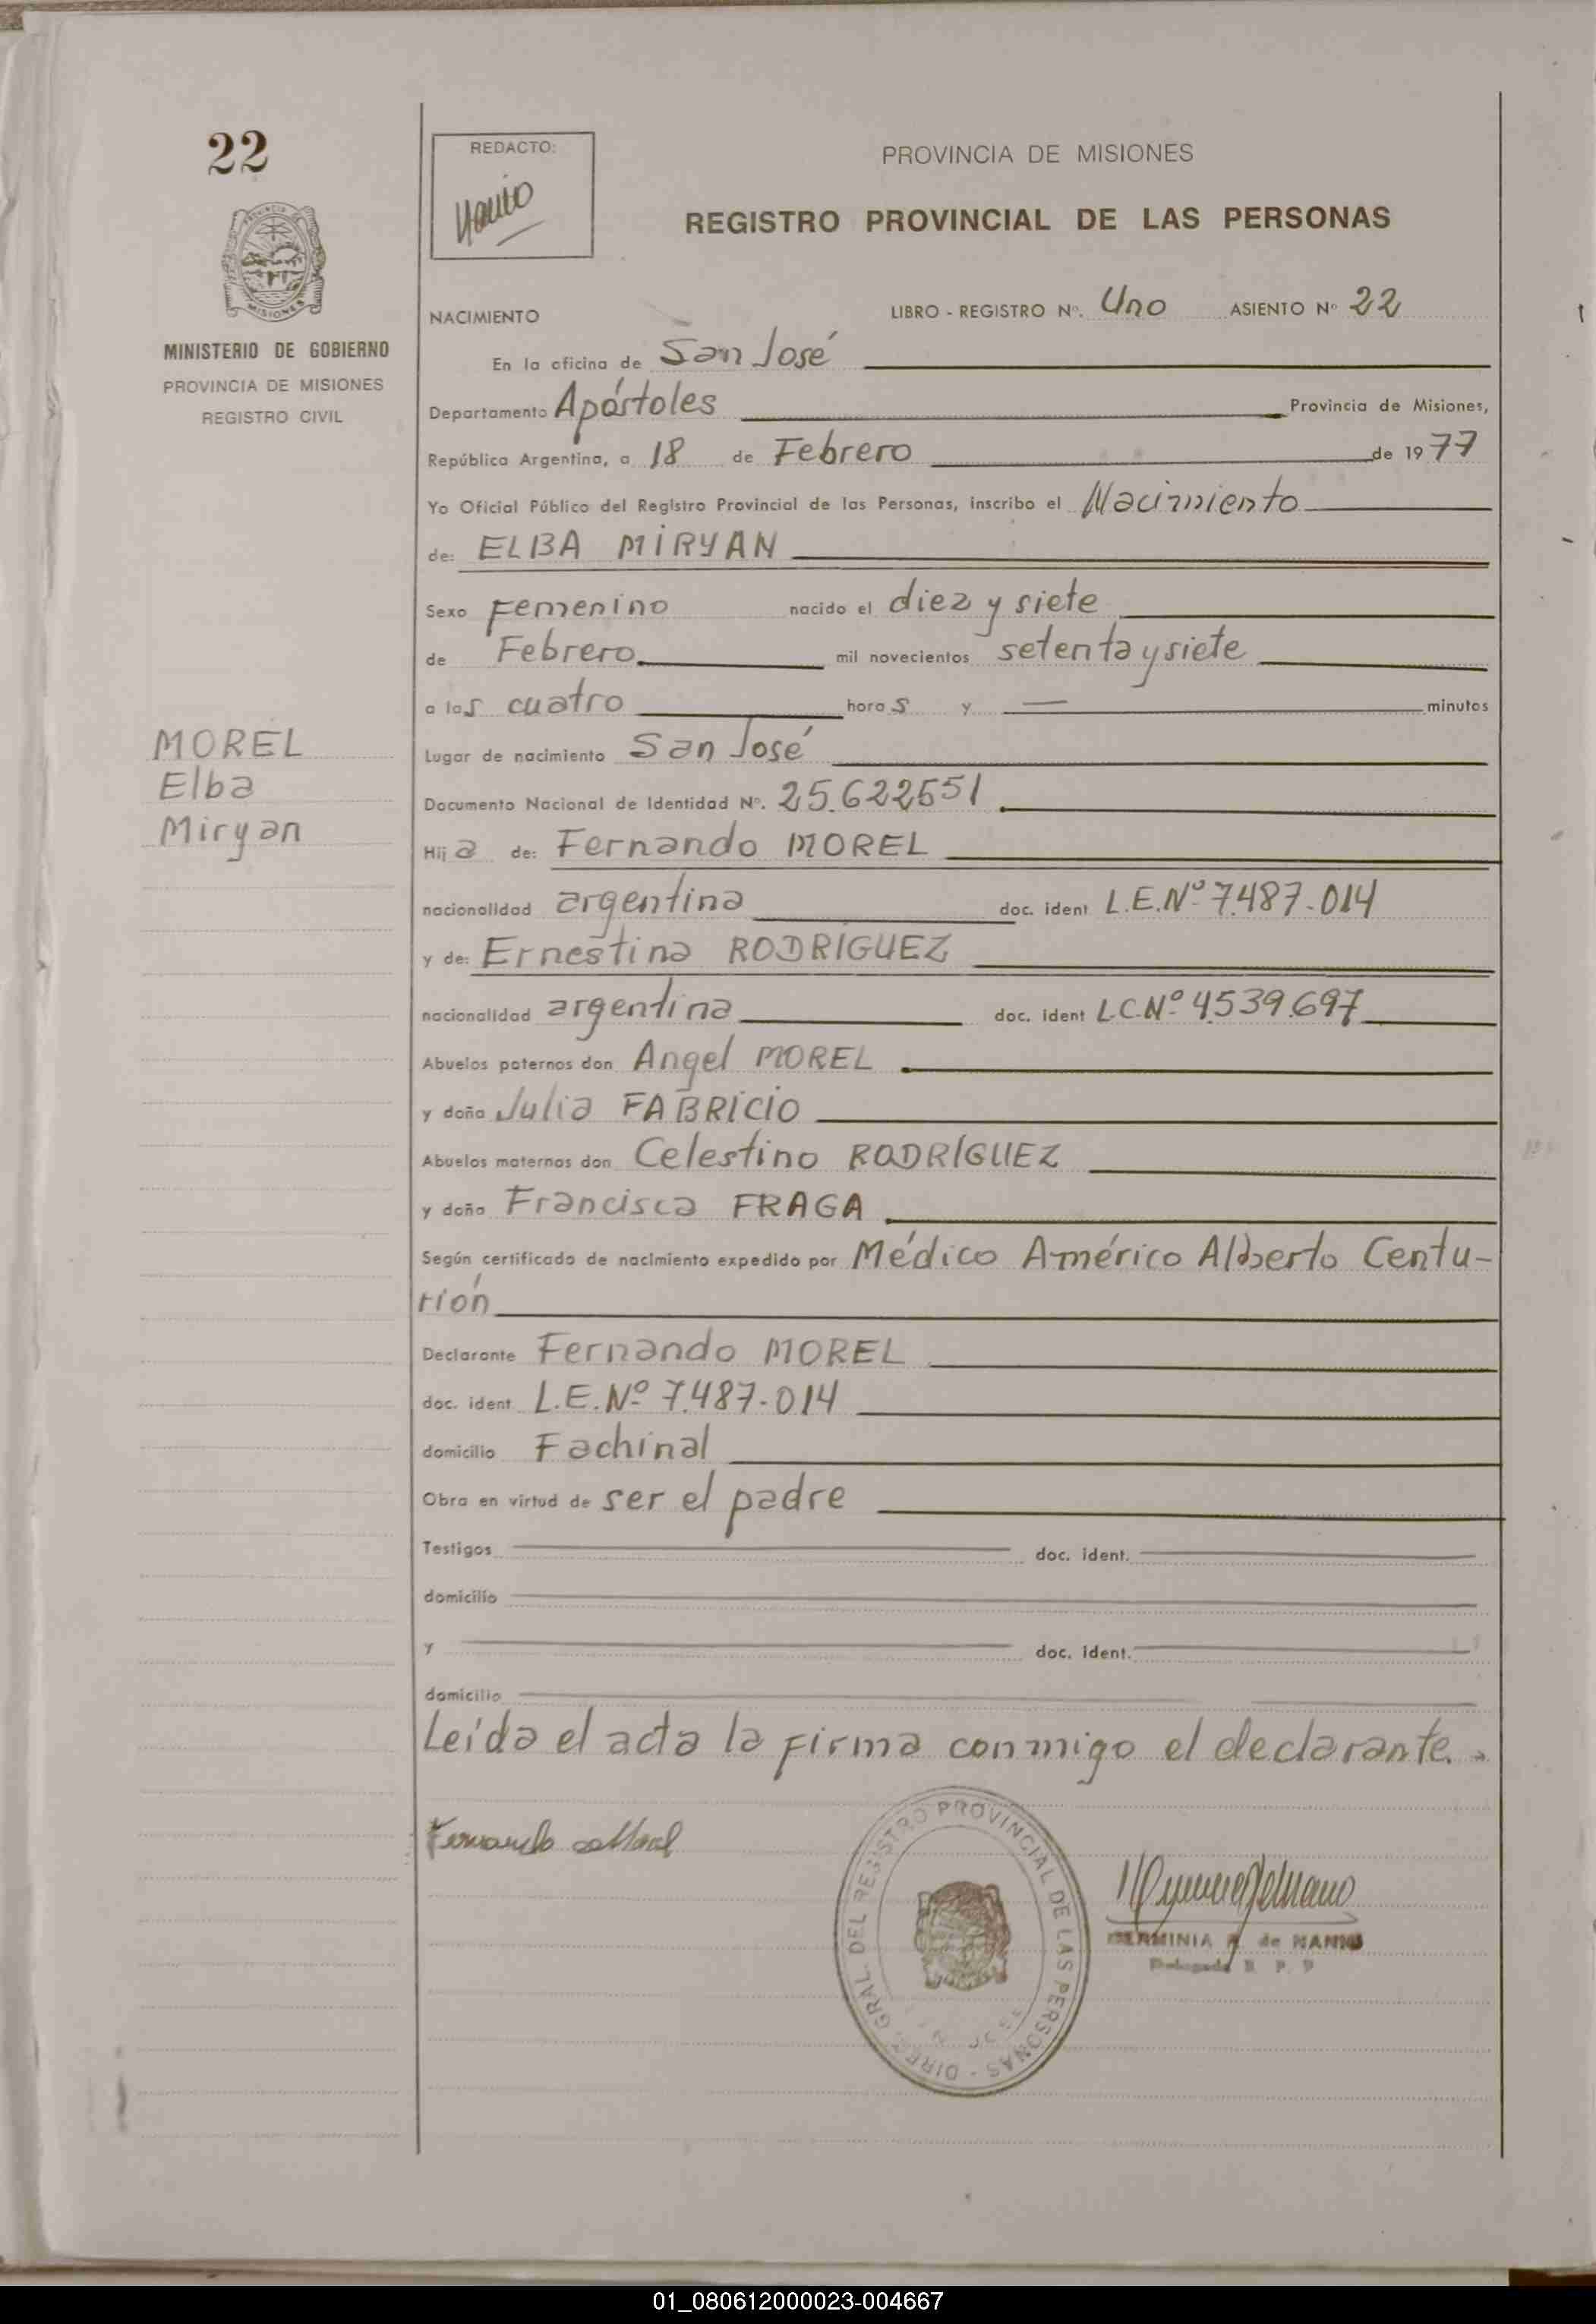 22
REDACTO:
PROVINCIA DE MISIONES
REGISTRO PROVINCIAL DE LAS PERSONAS
MINISTERIO DE GOBIERNO
PROVINCIA DE MISIONES
REGISTRO CIVIL
NACIMIENTO LIBRO - REGISTRO Nº. Uno ASIENTO Nº 22
En la oficina de San José
Departamento Apóstoles Provincia de Misiones,
República Argentina, a 18 de Febrero de 1977
Yo Oficial Público del Registro Provincial de las Personas, inscribo el Nacimiento
de: ELBA MIRYAN
Sexo Femenino nacido el diez y siete
de Febrero mil novecientos setenta y siete
a las cuatro horas y — minutos
MOREL
Elba
Miryan
Lugar de nacimiento San José
Documento Nacional de Identidad Nº. 25.622551
Hija de: Fernando MOREL
nacionalidad argentina doc. ident L.E.Nº 7.487.014
y de: Ernestina RODRÍGUEZ
nacionalidad argentina doc. ident L.C.Nº 4.539.697
Abuelos paternos don Angel MOREL
y doña Julia FABRICIO
Abuelos maternos don Celestino RODRÍGUEZ
y doña Francisca FRAGA
Según certificado de nacimiento expedido por Médico Américo Alberto Centu-
rión
Declarante Fernando MOREL
doc. ident L.E.Nº 7.487.014
domicilio Fachinal
Obra en virtud de ser el padre
Testigos doc. ident.
domicilio
y doc. ident.
domicilio
Leída el acta la firma conmigo el declarante.
Fernando Morel
DIREC. GRAL. DEL REGISTRO PROVINCIAL DE LAS PERSONAS
HERMINIA de
Delegada R. P. P
01_080612000023-004667